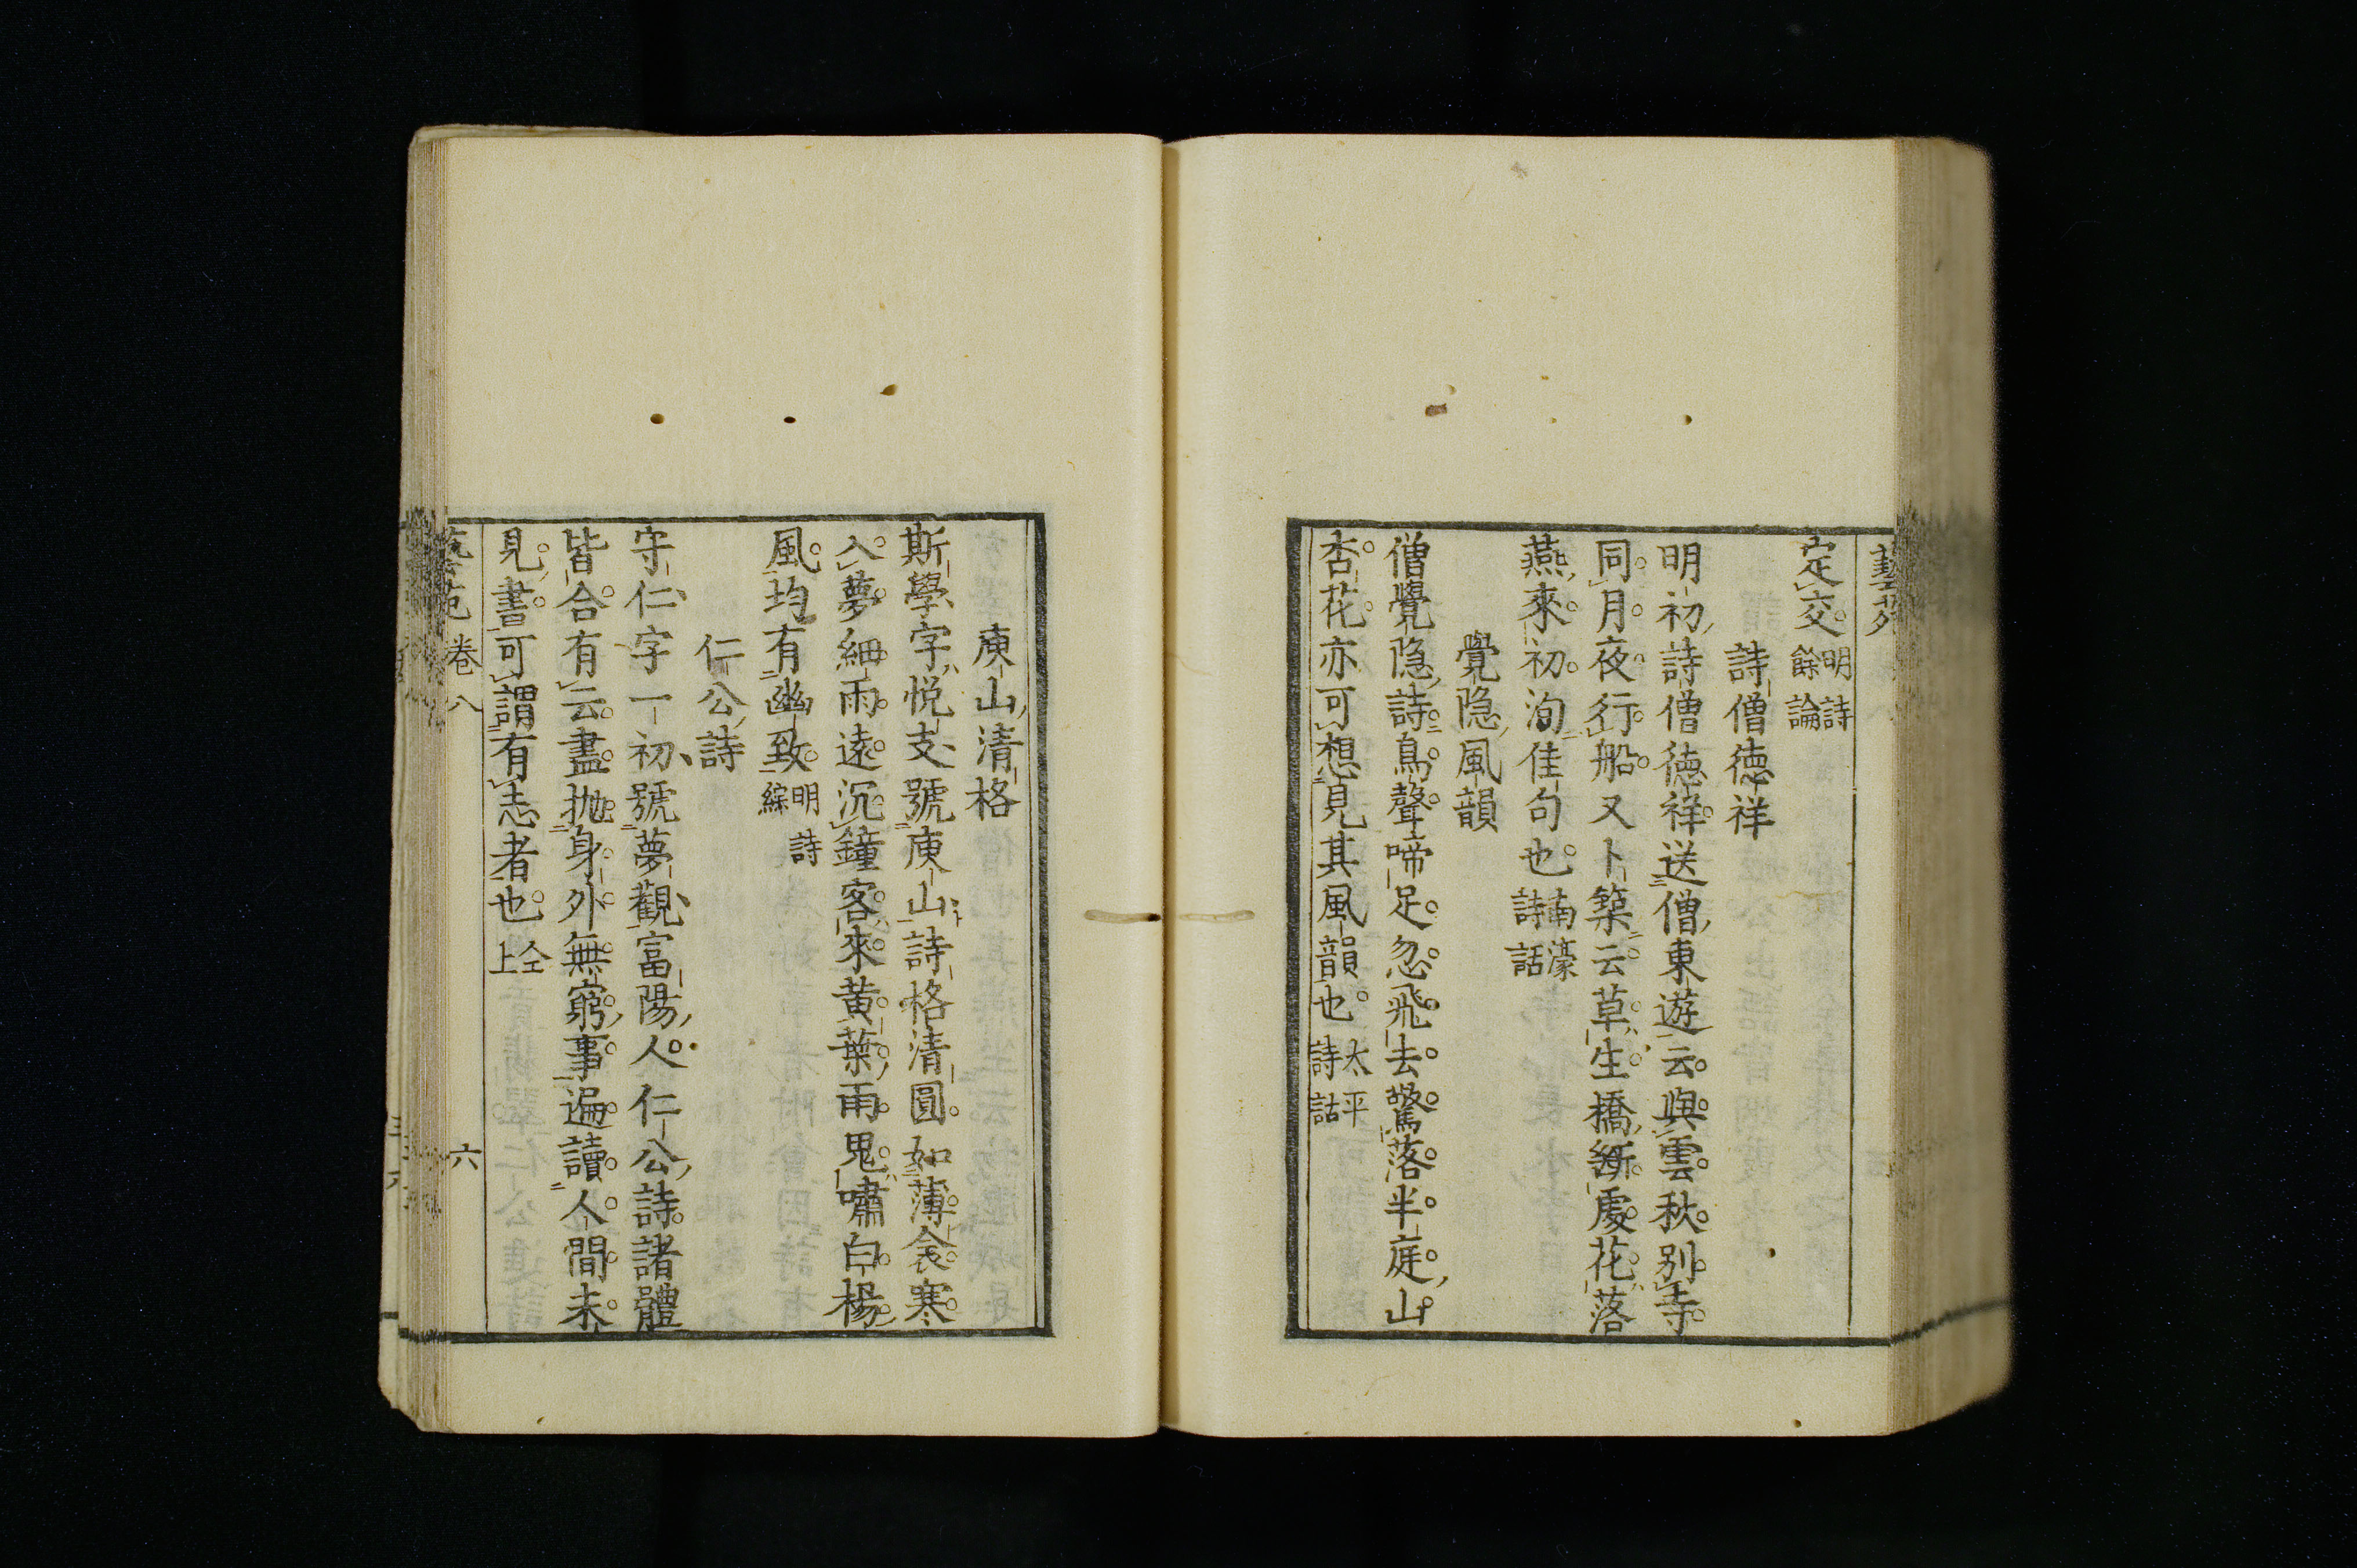 藝苑
定交明詩餘論
詩僧德祥
明初詩僧德祥送僧東遊云與雲秋別寺
同月夜行船又卜築云草生橋斷處花落
燕來初洵佳句也南濠詩話
覺隐風韻
僧覺隐詩鳥聲啼足忽飛去驚落半庭山
杏花亦可想見其風韻也太平詩話
庾山清格
斯學字悦支號庾山詩格清圓如薄衾寒
入夢細雨遠沉鐘客來黄葉雨鬼嘯白楊
風均有幽致明詩綜
仁公詩
守仁字一初號夢觀富陽人仁公詩諸體
皆合有云盡拋身外無窮事遍讀人間未
見書可謂有志者也仝上
藝苑 卷八 六